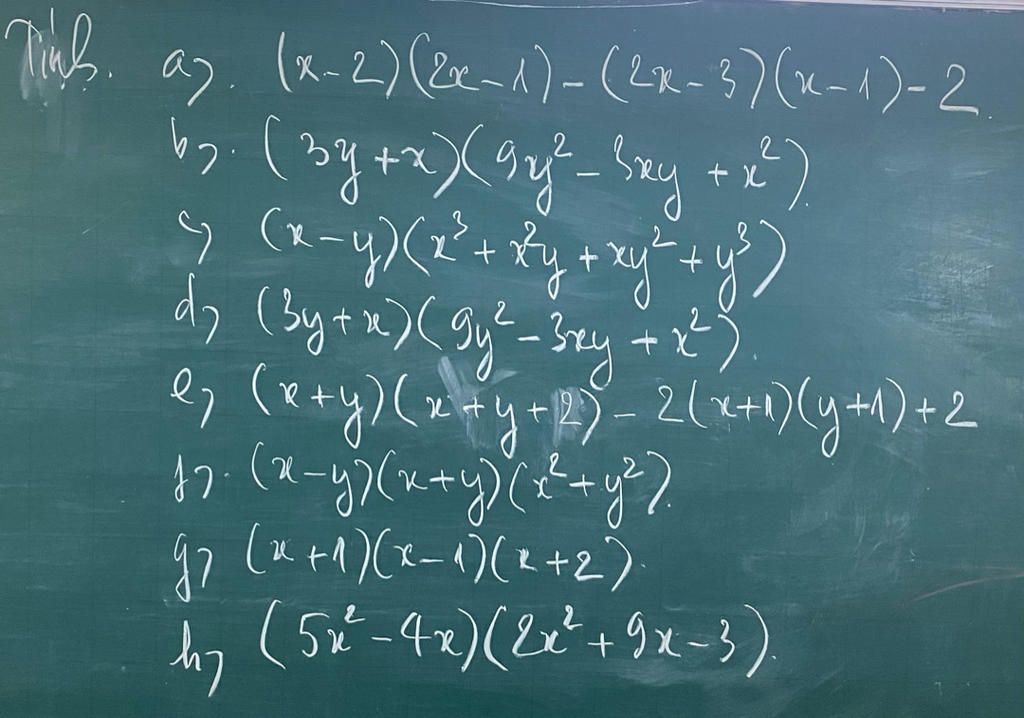 Tính. a). (x-2)(2x-1)-(2x-3)(x-1)-2.
b). (3y+x)(9y²-3xy+x²).
c) (x-y)(x³+x²y+xy²+y³)
d) (3y+x)(9y²-3xy+x²).
e) (x+y)(x+y+2)-2(x+1)(y+1)+2
f). (x-y)(x+y)(x²+y²).
g) (x+1)(x-1)(x+2).
h) (5x²-4x)(2x²+9x-3).